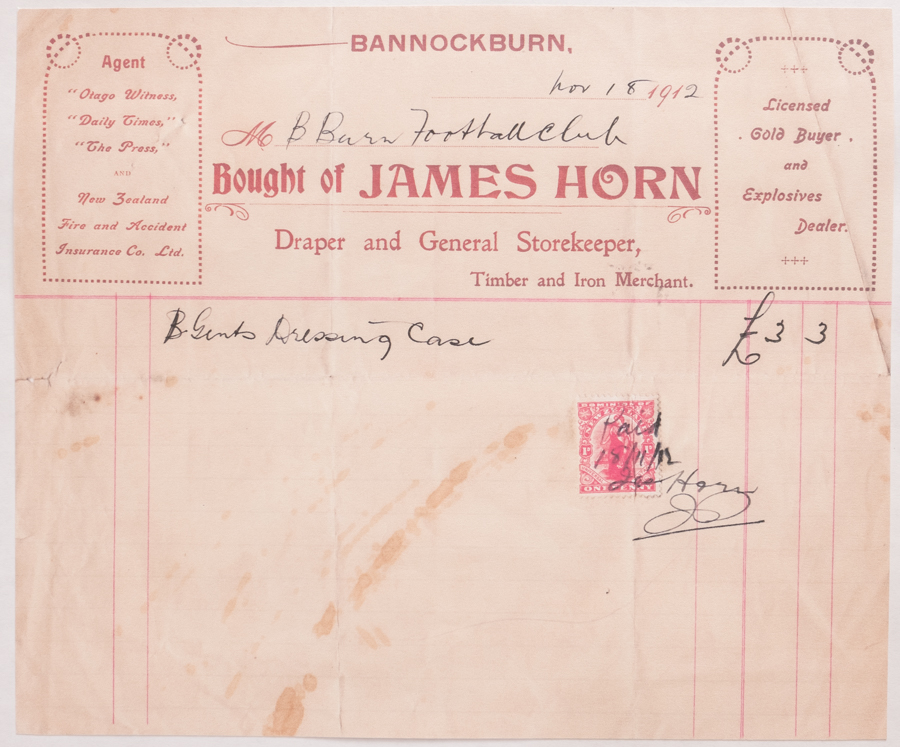 Agent
"Otago Witness,
"Daily Times,"
"The Press,"
AND
New Zealand
Fire and Accident
Insurance Co. Ltd.
BANNOCKBURN,
Nov 18 1912
M B Burn Football Club
Bought of JAMES HORN
Draper and General Storekeeper,
Timber and Iron Merchant.
Licensed
Gold Buyer,
and
Explosives
Dealer.
Gents Dressing Case £3 3
Paid
18/11/12
Horn
ONE PENNY